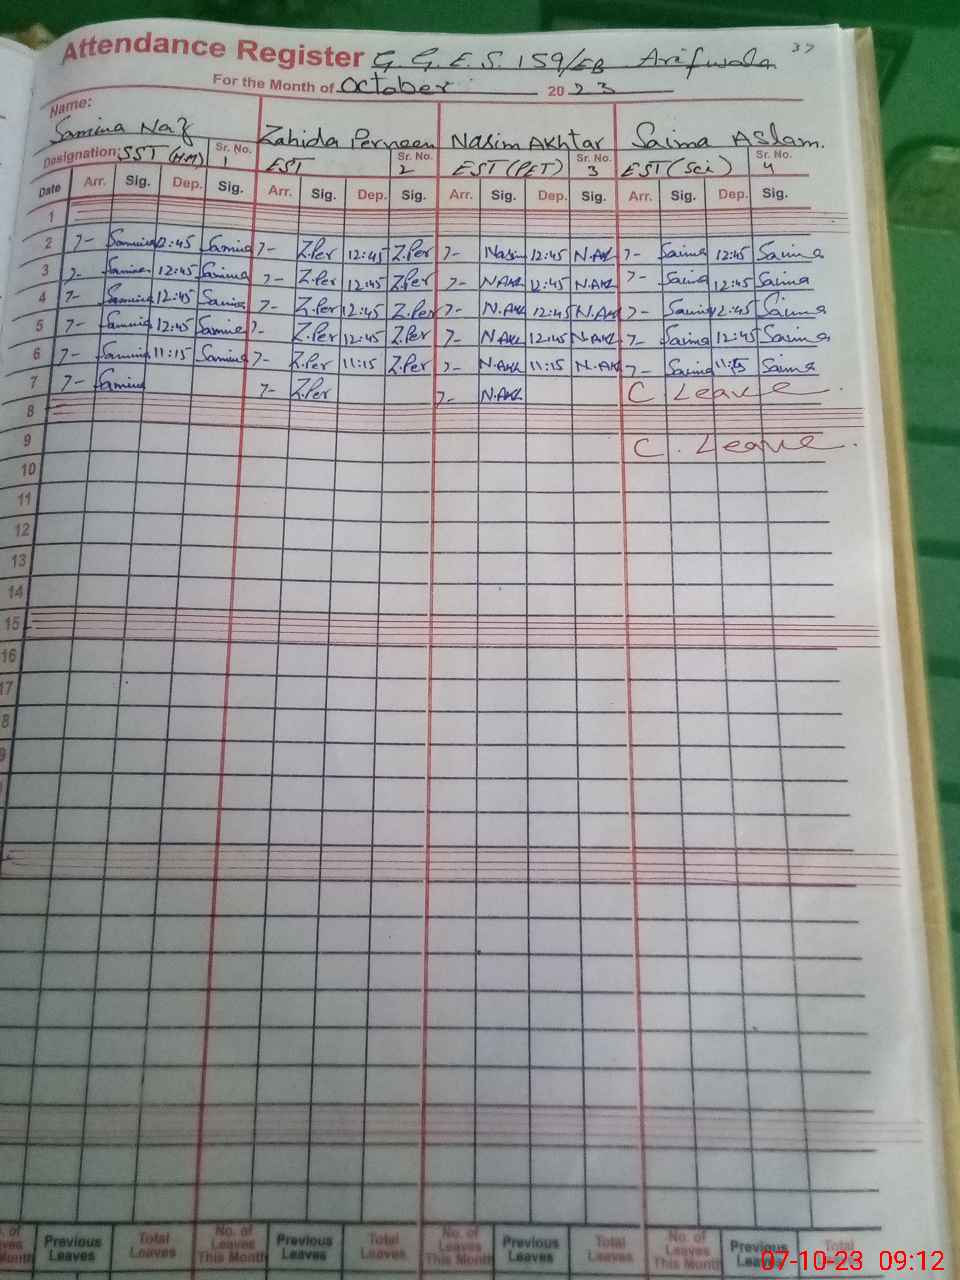 37
Attendance Register G.G.E.S. 159/EB Arifwala
For the Month of October 2023
Name:
Samina Naz Zahida Perneen Nasim Akhtar Saima Aslam.
Designation: SST (H.M) Sr. No. 1 EST Sr. No. 2 EST (PET) Sr. No. 3 EST (Sci) Sr. No. 4
Date Arr. Sig. Dep. Sig. Arr. Sig. Dep. Sig. Arr. Sig. Dep. Sig. Arr. Sig. Dep. Sig.
1
2 7- Samina 12:45 Samina 7- Z.Per 12:45 Z.Per 7- Nasim 12:45 N.Akh 7- Saima 12:45 Saima
3 7- Samina 12:45 Samina 7- Z.Per 12:45 Z.Per 7- N.Akh 12:45 N.Akh 7- Saima 12:45 Saima
4 7- Samina 12:45 Samina 7- Z.Per 12:45 Z.Per 7- N.Akh 12:45 N.Akh 7- Saima 12:45 Saima
5 7- Samina 12:45 Samina 7- Z.Per 12:45 Z.Per 7- N.Akh 12:45 N.Akh 7- Saima 12:45 Saima
6 7- Samina 11:15 Samina 7- Z.Per 11:15 Z.Per 7- N.Akh 11:15 N.Akh 7- Saima 11:15 Saima
7 7- Samina 7- Z.Per 7- N.Akh C. Leave.
8
9 C. Leave.
10
11
12
13
14
15
16
17
8
No. of Leaves This Month Previous Leaves Total Leaves No. of Leaves This Month Previous Leaves Total Leaves No. of Leaves This Month Previous Leaves Total Leaves No. of Leaves This Month Previous Leaves Total
07-10-23 09:12